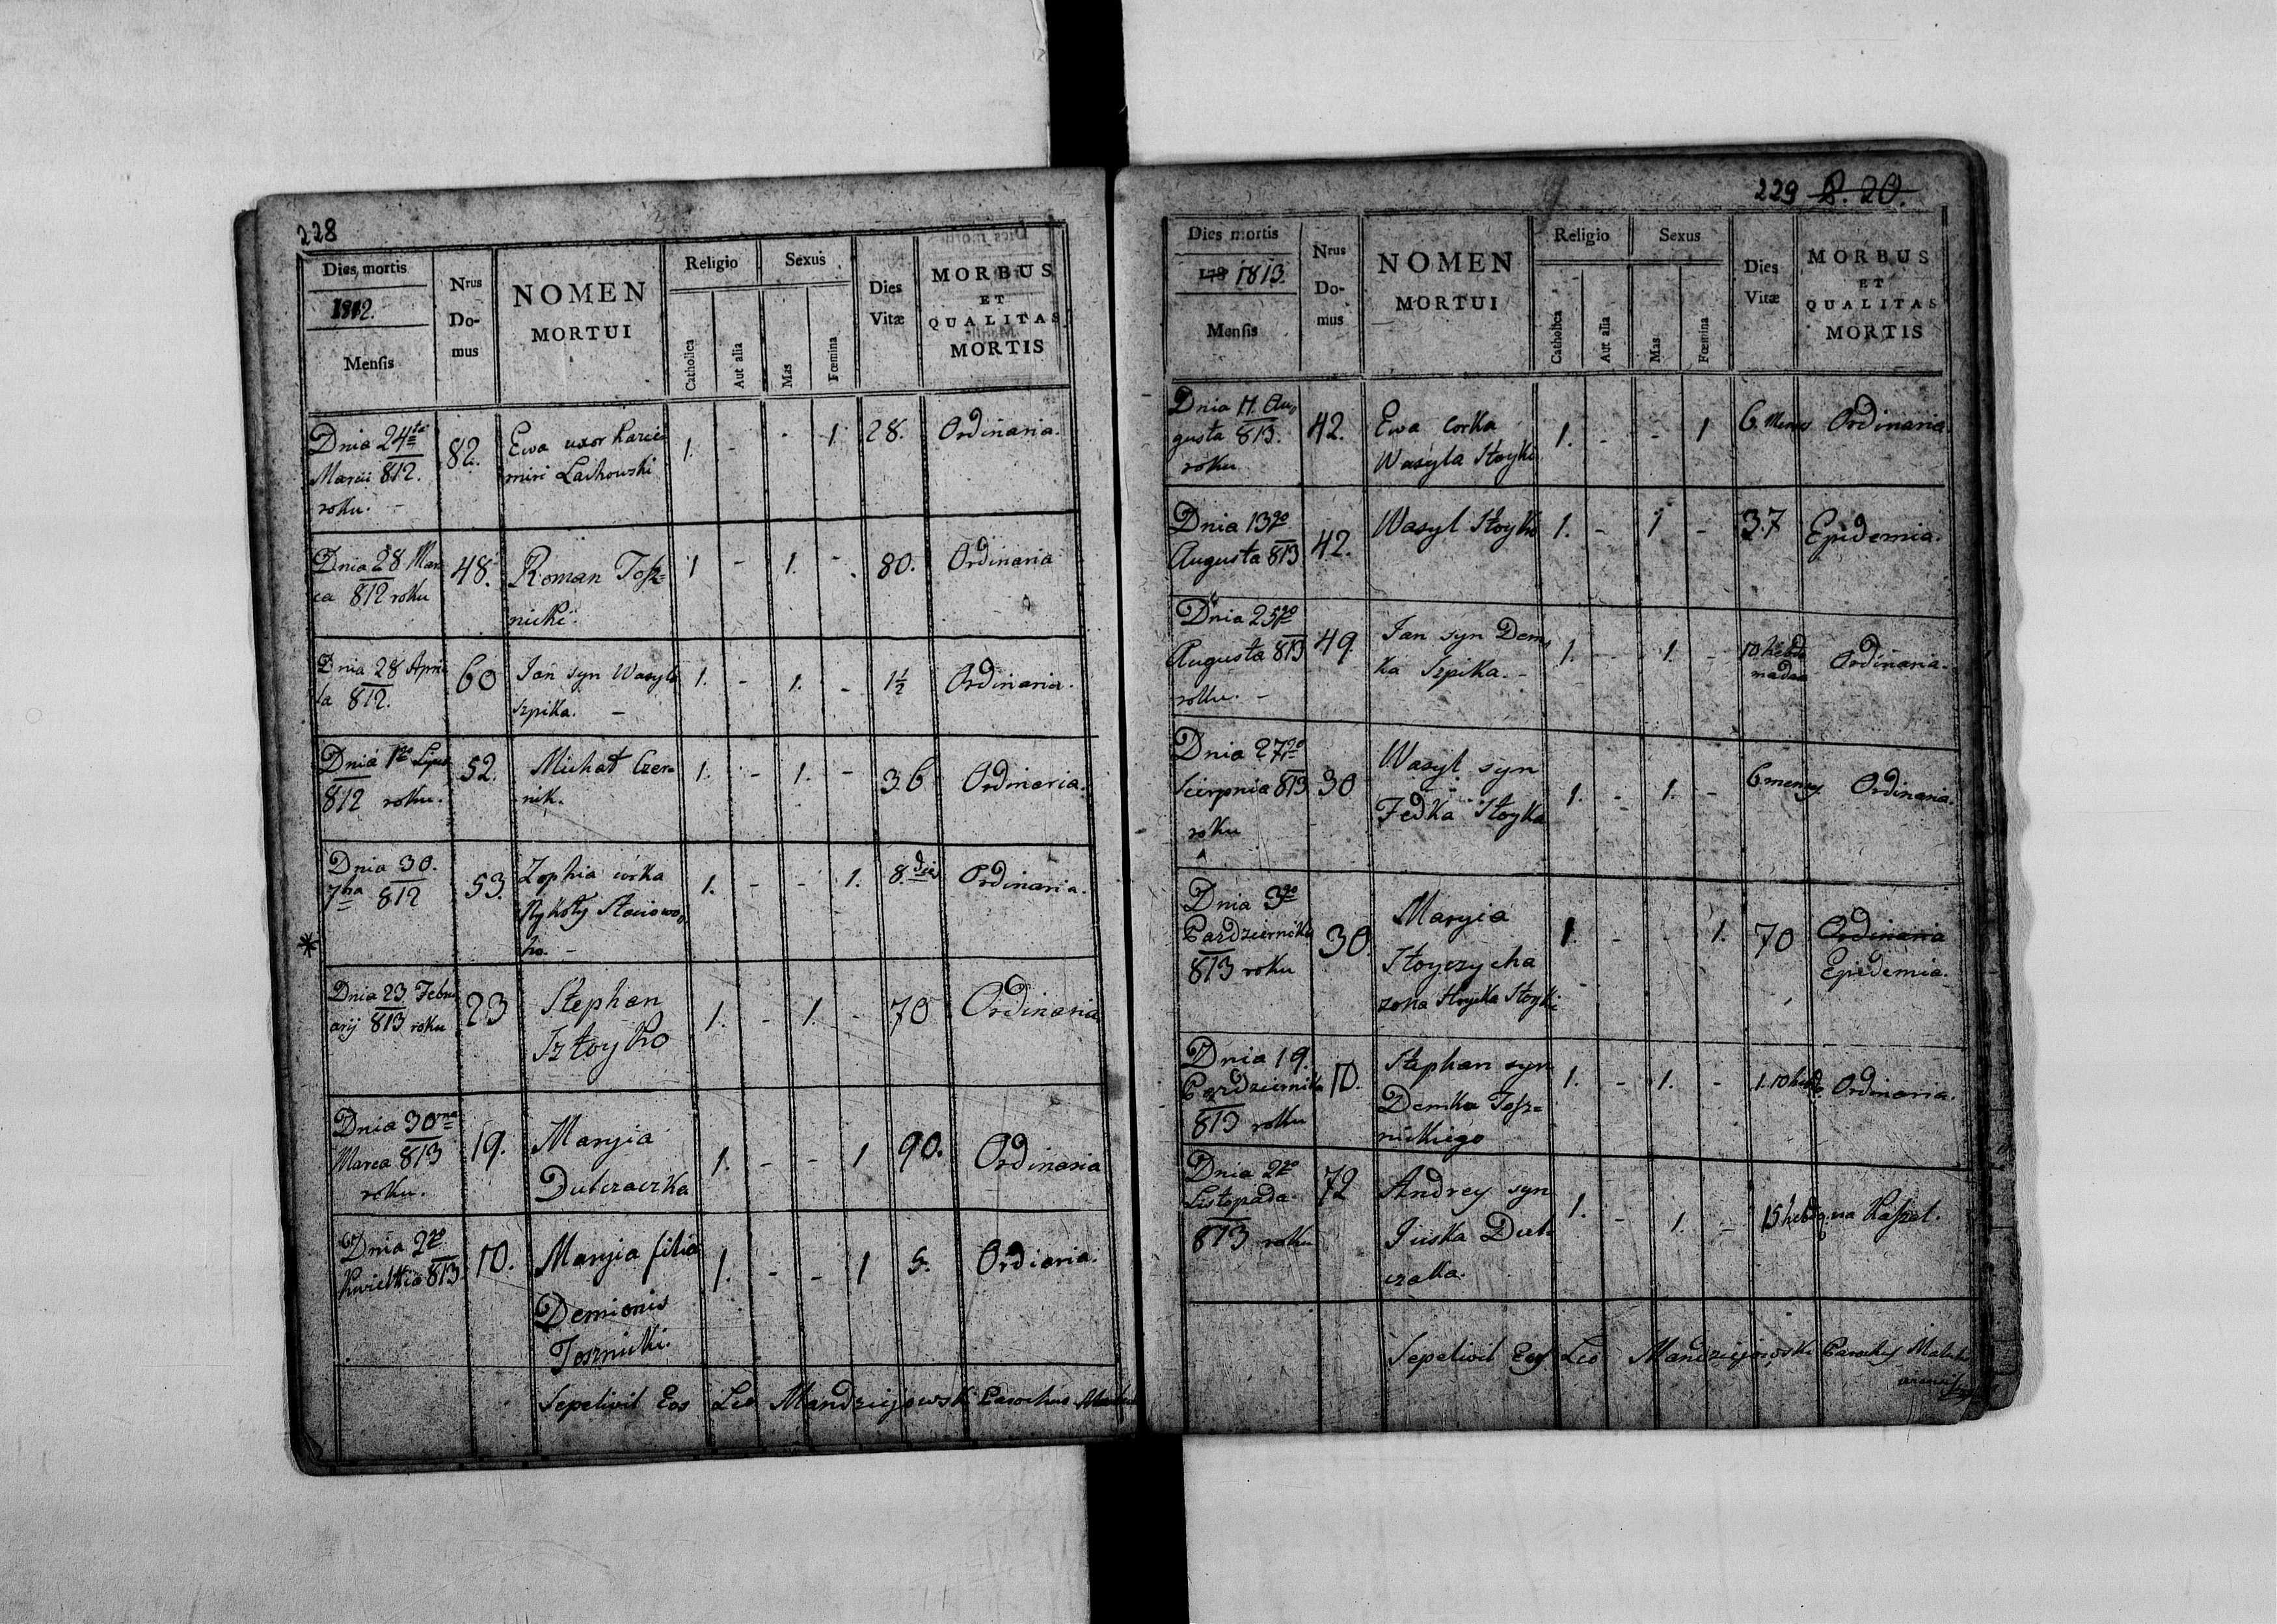 228
Dies mortis
1812.
Mensis
Nrus
Do-
mus
NOMEN
MORTUI
Religio
Catholica
Aut alia
Sexus
Mas
Fœmina
Dies
Vitæ
MORBUS
ET
QUALITAS
MORTIS
Dnia 24ta
812.
roku. -
82.
Ewa uxor Kazie
miri Lachowski
1. - - 1. 28. Ordinaria.
Dnia 28 Mar
ca 812 roku
48.
Roman Tosz=
nicki.
1 - 1. - 80. Ordinaria
Dnia 28 Apri
la 812.
60
Jan syn Wasyla
Szpika. -
1. - 1. - 1½ Ordinaria.
Dnia 1go Lipca
812 roku.
52.
Michał Czer=
nik.
1. - 1. - 36 Ordinaria.
Dnia 30.
7bra 812
53.
Zophia corka
Mykoły
ho. -
1. - - 1. 8. Ordinaria.
*
Dnia 23 Febru
arij 813 roku
23
Stephan
Sztoyko
1. - 1. - 70 Ordinaria
Dnia 30
Marca 813
roku.
19.
Maryia
Dubczaczka
1. - - 1 90. Ordinaria
Dnia 2go
813.
10.
Maryia filia
Demionis
Tosznicki.
1. - - 1 5. Ordiaria.
Sepelivit Eos Leo Mandziejowski Parochus
229 P. 20.
Dies mortis
178 1813.
Mensis
Nrus
Do-
mus
NOMEN
MORTUI
Religio
Catholica
Aut alia
Sexus
Mas
Fœmina
Dies
Vitæ
MORBUS
ET
QUALITAS
MORTIS
Dnia 11. Au
gusta 813.
roku
42.
Ewa corka
Wasyla Stoyki
1. - - 1 6. Ordinaria
Dnia 13go
Augusta 813
42.
Wasyl Stoyko
1. - 1 - 37 Epidemia.
Dnia 25go
Augusta 813
roku. -
49
Jan syn Dem
ka Szpika. -
1. - 1. - 10 hebdo
madas
Ordinaria.
Dnia 27go
Sierpnia 813
roku
30
Wasyl syn
Fedka Stoyka
1. - 1. - 6 mensy Ordinaria.
Dnia 3go
Pazdziernika
813 roku
30.
Maryia
Stoyczycha
zona Stoyki
1. - - 1. 70 Ordinaria
Epidemia.
Dnia 19.
Pazdziernika
813 roku
10.
Stephan syn
Demka Tosz=
nickiego
1. - 1. - 1. 10 hebd. Ordinaria.
Dnia 2go
Listopada
813 roku
72
Andrey syn
Juska Dub
czaka.
1. - 1. - 15 hebd. na Kaszel.
Sepelivit Eos Leo Mandziejowski Parochus